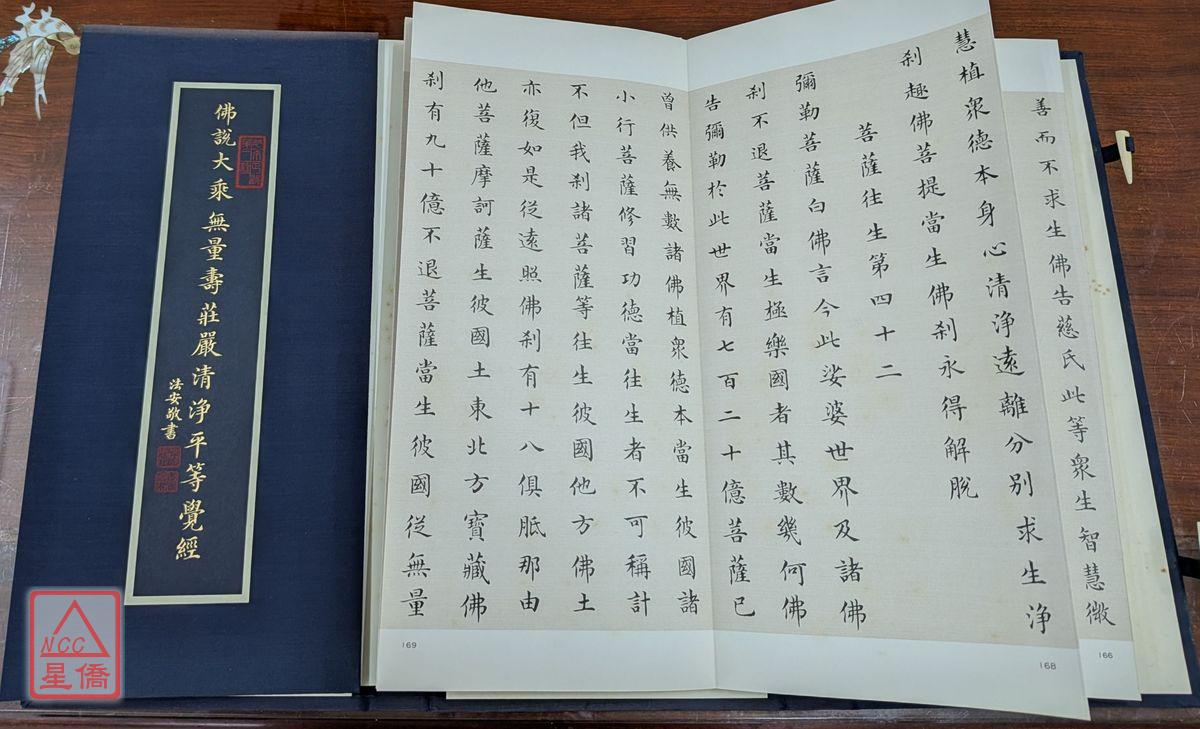 佛說大乘無量壽莊嚴清淨平等覺經
法安敬書
善而不求生佛告慈氏此等衆生智慧微
166
慧植衆德本身心清淨遠離分別求生淨
刹趣佛菩提當生佛刹永得解脫
菩薩往生第四十二
彌勒菩薩白佛言今此娑婆世界及諸佛
刹不退菩薩當生極樂國者其數幾何佛
告彌勒於此世界有七百二十億菩薩已
168
曾供養無數諸佛植衆德本當生彼國諸
小行菩薩修習功德當往生者不可稱計
不但我刹諸菩薩等往生彼國他方佛土
亦復如是從遠照佛刹有十八俱胝那由
他菩薩摩訶薩生彼國土東北方寶藏佛
刹有九十億不退菩薩當生彼國從無量
169
NCC
星僑